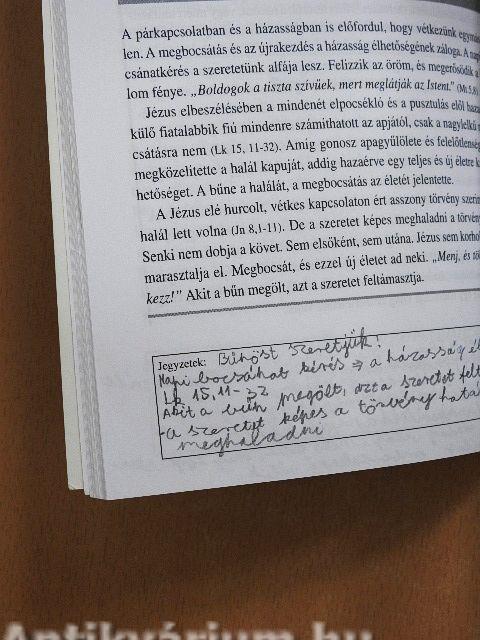 A párkapcsolatban és a házasságban is előfordul, hogy vétkezünk
len. A megbocsátás és az újrakezdés a házasság élhetőségének záloga. A
csánatkérés a szeretetünk alfája lesz. Felizzik az öröm, és megerősödik a
lom fénye. „Boldogok a tiszta szívűek, mert meglátják az Istent.” (Mt 5,8)
Jézus elbeszélésében a mindenét elpocsékló és a pusztulás elől
külő fiatalabbik fiú mindenre számíthatott az apjától, csak a nagylelkű
csátásra nem (Lk 15, 11-32). Amíg gonosz apagyűlölete és
megközelítette a halál kapuját, addig hazaérve egy teljes és új életre
hetőséget. A bűne a halálát, a megbocsátás az életét jelentette.
A Jézus elé hurcolt, vétkes kapcsolaton ért asszony törvény
halál lett volna (Jn 8,1-11). De a szeretet képes meghaladni a
Senki nem dobja a követ. Sem elsőként, sem utána. Jézus sem
marasztalja el. Megbocsát, és ezzel új életet ad neki. „Menj, és
kezz!” Akit a bűn megölt, azt a szeretet feltámasztja.
Jegyzetek: Bűnöst szeretjük!
Napi bocsánat kérés ⇒ a házasság él
Lk 15,11-32
Akit a bűn megölt, azt a szeretet felt
-a szeretet képes a törvény hatá
meghaladni
Antikvárium.hu